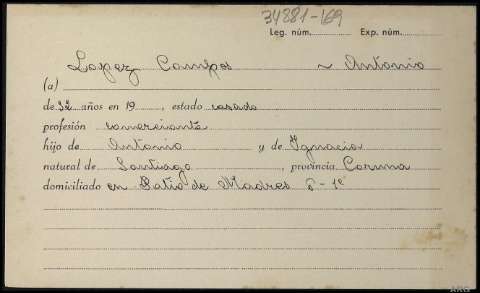 34881-169
Leg. núm. Exp. núm.
Lopez Campos ~ Antonio
(a)
de 32 años en 19 , estado casado
profesión comerciante
hijo de Antonio y de Ignacia
natural de Santiago , provincia Coruna
domiciliado en Patio de Madres 8 - 1º